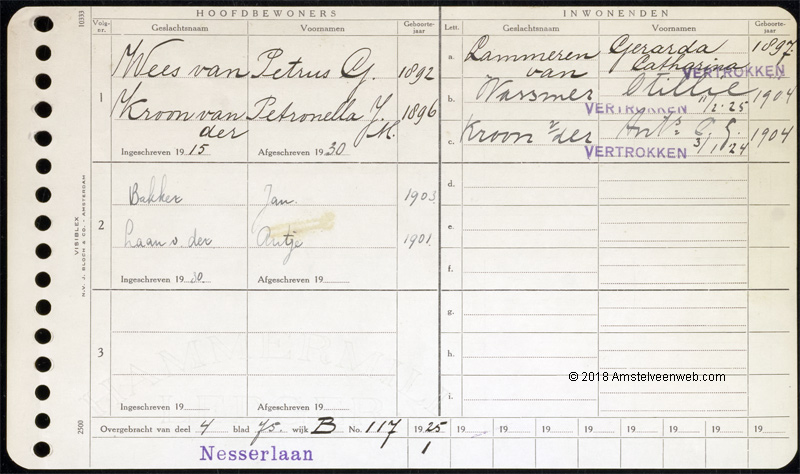 HOOFDBEWONERS
INWONENDEN
Volg-nr.
Geslachtsnaam
Voornamen
Geboorte-jaar
Lett.
Geslachtsnaam
Voornamen
Geboorte-jaar
10333
1
Wees van Petrus G. 1892
Kroon van der Petronella J. M. 1896
Ingeschreven 1915 Afgeschreven 1930
2
Bakker Jan. 1903
Laan v. der Antje 1901
Ingeschreven 1930. Afgeschreven 19
3
Ingeschreven 19 Afgeschreven 19
a. Lammeren van Gerarda Catharina 1897
VERTROKKEN
b. Wassmer 1904
VERTROKKEN 11/2.25
c. Kroon v/der 1904
VERTROKKEN 3/1 24
d.
e.
f.
g.
h.
i.
© 2018 Amstelveenweb.com
VISIBLEX
N.V. J. BLOCH & CO. - AMSTERDAM
2500
Overgebracht van deel 4 blad 75. wijk B No. 117 1925 19 19 19 19 19 19 19 19 19
1
Nesserlaan